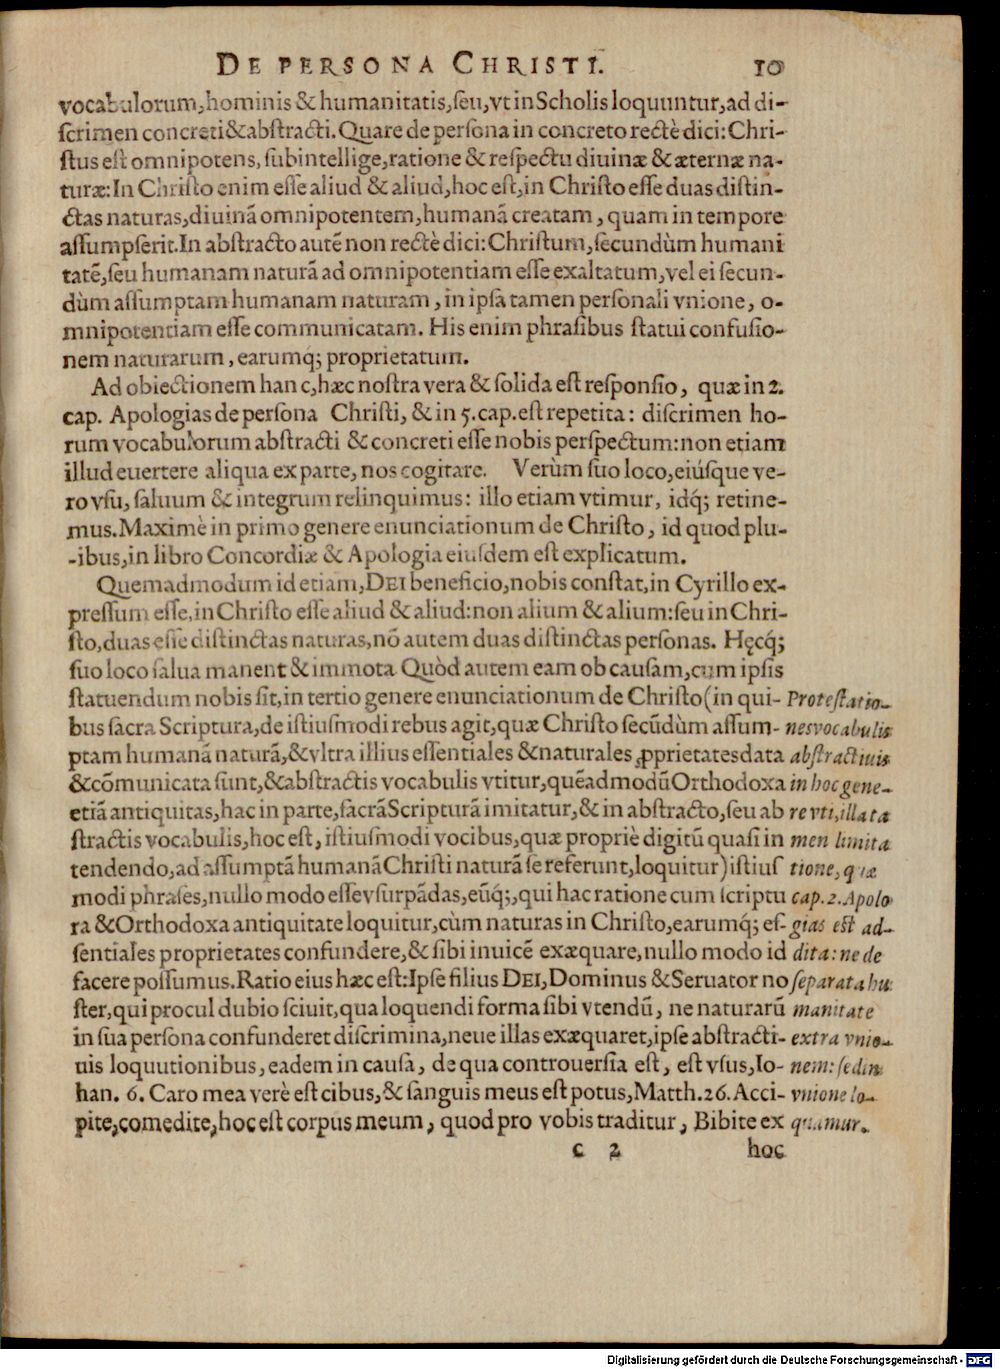 DE PERSONA CHRISTI. 10
vocabulorum, hominis & humanitatis, seu, vt in Scholis loquuntur, ad di-
scrimen concreti & abstracti. Quare de persona in concreto rectè dici: Chri-
stus est omnipotens, subintellige, ratione & respectu diuinæ & æternæ na-
turæ: In Christo enim esse aliud & aliud, hoc est, in Christo esse duas distin-
ctas naturas, diuinā omnipotentem, humanā creatam, quam in tempore
assumpserit. In abstracto autē non rectè dici: Christum, secundùm humani
tatē, seu humanam naturā ad omnipotentiam esse exaltatum, vel ei secun-
dùm assumptam humanam naturam, in ipsa tamen personali vnione, o-
mnipotentiam esse communicatam. His enim phrasibus statui confusio-
nem naturarum, earumq́; proprietatum.
Ad obiectionem hanc, hæc nostra vera & solida est responsio, quæ in 2.
cap. Apologias de persona Christi, & in 5. cap. est repetita: discrimen ho-
rum vocabulorum abstracti & concreti esse nobis perspectum: non etiam
illud euertere aliqua ex parte, nos cogitare. Verùm suo loco, eiúsque ve-
ro vsu, saluum & integrum relinquimus: illo etiam vtimur, idq́; retine-
mus. Maximè in primo genere enunciationum de Christo, id quod plu-
-ibus, in libro Concordiæ & Apologia eiusdem est explicatum.
Quemadmodum id etiam, DEI beneficio, nobis constat, in Cyrillo ex-
pressum esse, in Christo esse aliud & aliud: non alium & alium: seu in Chri-
sto, duas esse distinctas naturas, nō autem duas distinctas personas. Hęcq́;
suo loco salua manent & immota Quòd autem eam ob causam, cum ipsis
statuendum nobis sit, in tertio genere enunciationum de Christo (in qui-
bus sacra Scriptura, de istiusmodi rebus agit, quæ Christo secūdùm assum-
ptam humanā naturā, & vltra illius essentiales & naturales ꝓprietates data
& cōmunicata sunt, & abstractis vocabulis vtitur, quēadmodū Orthodoxa
etiā antiquitas, hac in parte, sacrā Scripturā imitatur, & in abstracto, seu ab
stractis vocabulis, hoc est, istiusmodi vocibus, quæ propriè digitū quasi in
tendendo, ad assumptā humanā Christi naturā se referunt, loquitur) istius
modi phrases, nullo modo esse vsurpādas, eūq́;, qui hac ratione cum scriptu
ra & Orthodoxa antiquitate loquitur, cùm naturas in Christo, earumq́; es-
sentiales proprietates confundere, & sibi inuicē exæquare, nullo modo id
facere possumus. Ratio eius hæc est: Ipse filius DEI, Dominus & Seruator no
ster, qui procul dubio sciuit, qua loquendi forma sibi vtendū, ne naturarū
in sua persona confunderet discrimina, neue illas exæquaret, ipse abstracti-
uis loquutionibus, eadem in causa, de qua controuersia est, est vsus, Io-
han. 6. Caro mea verè est cibus, & sanguis meus est potus, Matth. 26. Acci-
pite, comedite, hoc est corpus meum, quod pro vobis traditur, Bibite ex
Protestatio-
nes vocabulis
abstractiuis
in hoc gene-
re vti, illata
men limita
tione, quæ
cap. 2. Apolo
gias est ad-
dita: ne de
separata hu
manitate
extra vnio-
nem: sed in
vnione lo-
quamur.
c 2 hoc
Digitalisierung gefördert durch die Deutsche Forschungsgemeinschaft - DFG